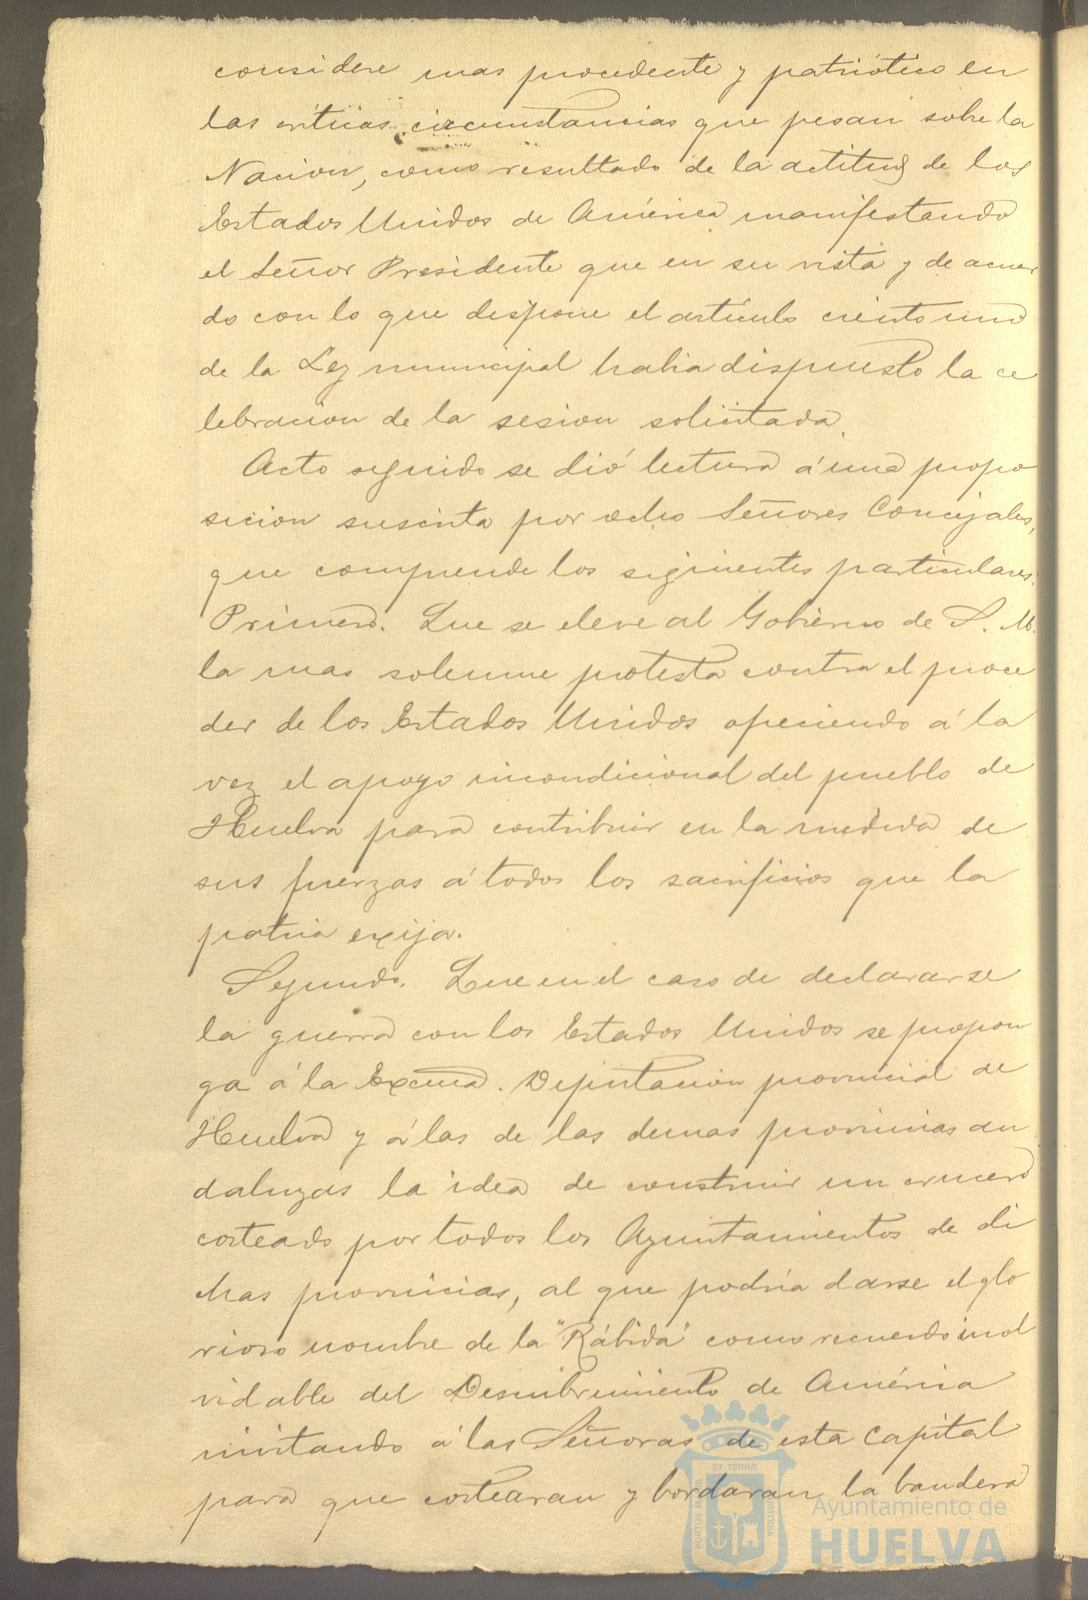 considere mas procedente y patriótico en
las críticas circunstancias que pesan sobre la
Nacion, como resultado de la actitud de los
Estados Unidos de América manifestando
el Señor Presidente que en su vista y de acuer
do con lo que dispone el artículo ciento uno
de la Ley municipal habia dispuesto la ce
lebracion de la sesion solicitada.
Acto seguido se dió lectura á una propo
sicion suscrita por ocho Señores Concejales,
que comprende los siguientes particulares:
Primero. Que se eleve al Gobierno de S. M.
la mas solemne protesta contra el proce
der de los Estados Unidos ofreciendo á la
vez el apoyo incondicional del pueblo de
Huelva para contribuir en la medida de
sus fuerzas á todos los sacrificios que la
patria exija.
Segundo. Que en el caso de declararse
la guerra con los Estados Unidos se propon
ga á la Excma. Diputacion provincial de
Huelva y á las de las demas provincias an
daluzas la idea de construir un crucero
costeado por todos los Ayuntamientos de di
chas provincias, al que podria darse el glo
rioso nombre de la "Rábida" como recuerdo inol
vidable del Descubrimiento de América
invitando á las Señoras de esta Capital
para que costearan y bordaran la bandera
Ayuntamiento de
HUELVA